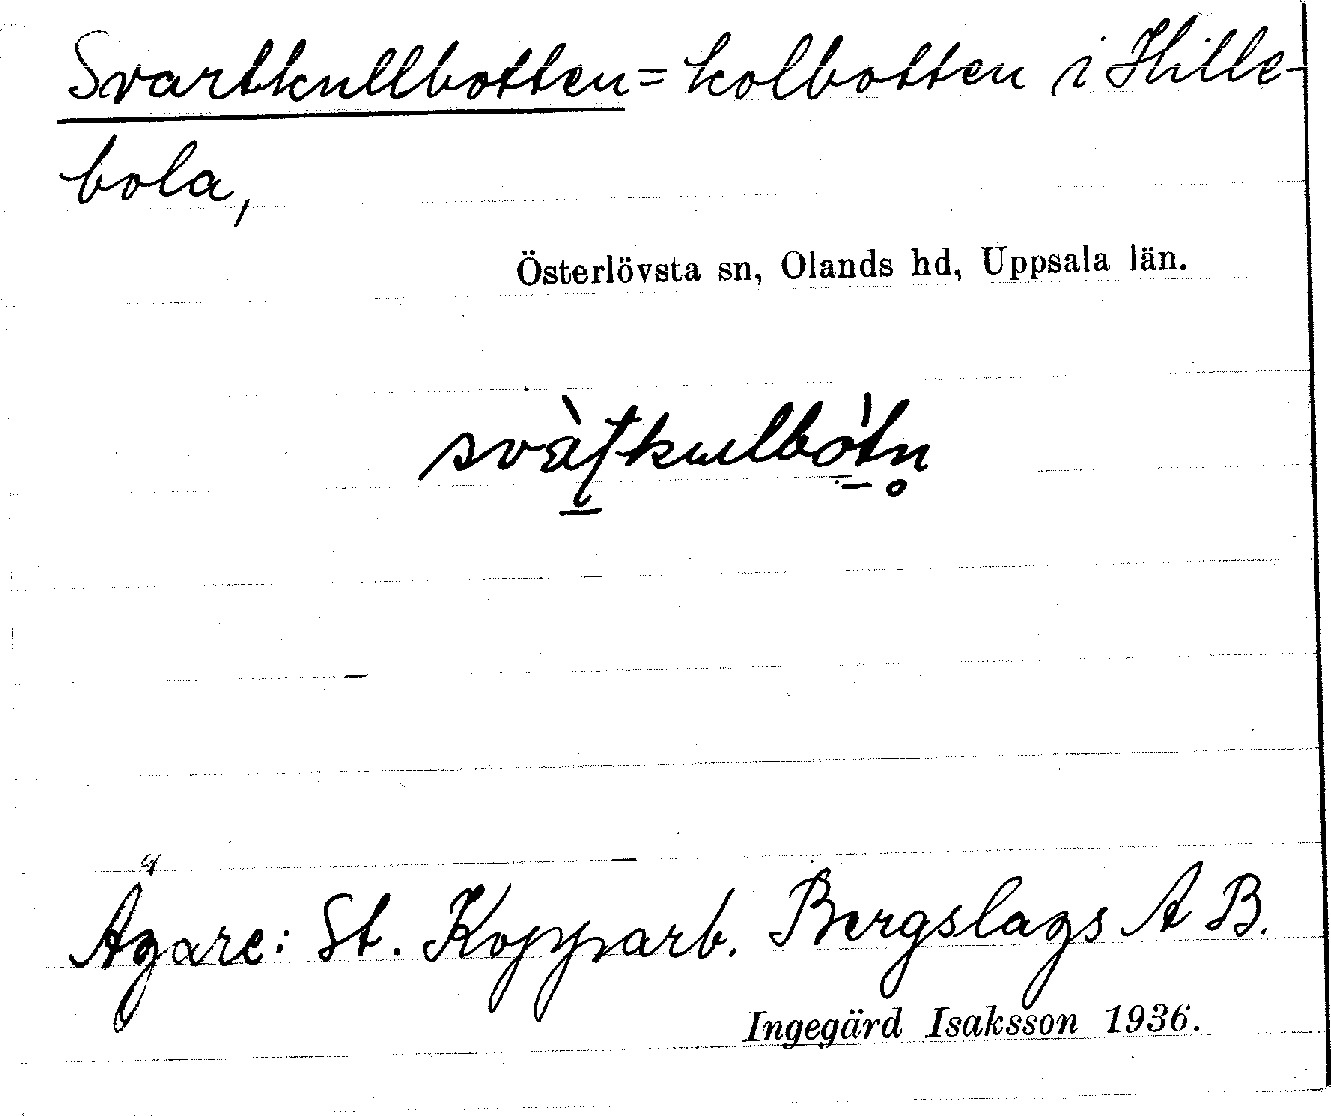 Svartkullbotten = kolbotten i Hille-
bola,
Österlövsta sn, Olands hd, Uppsala län.
Ägare: St. Kopparb. Bergslags A B.
Ingegärd Isaksson 1936.